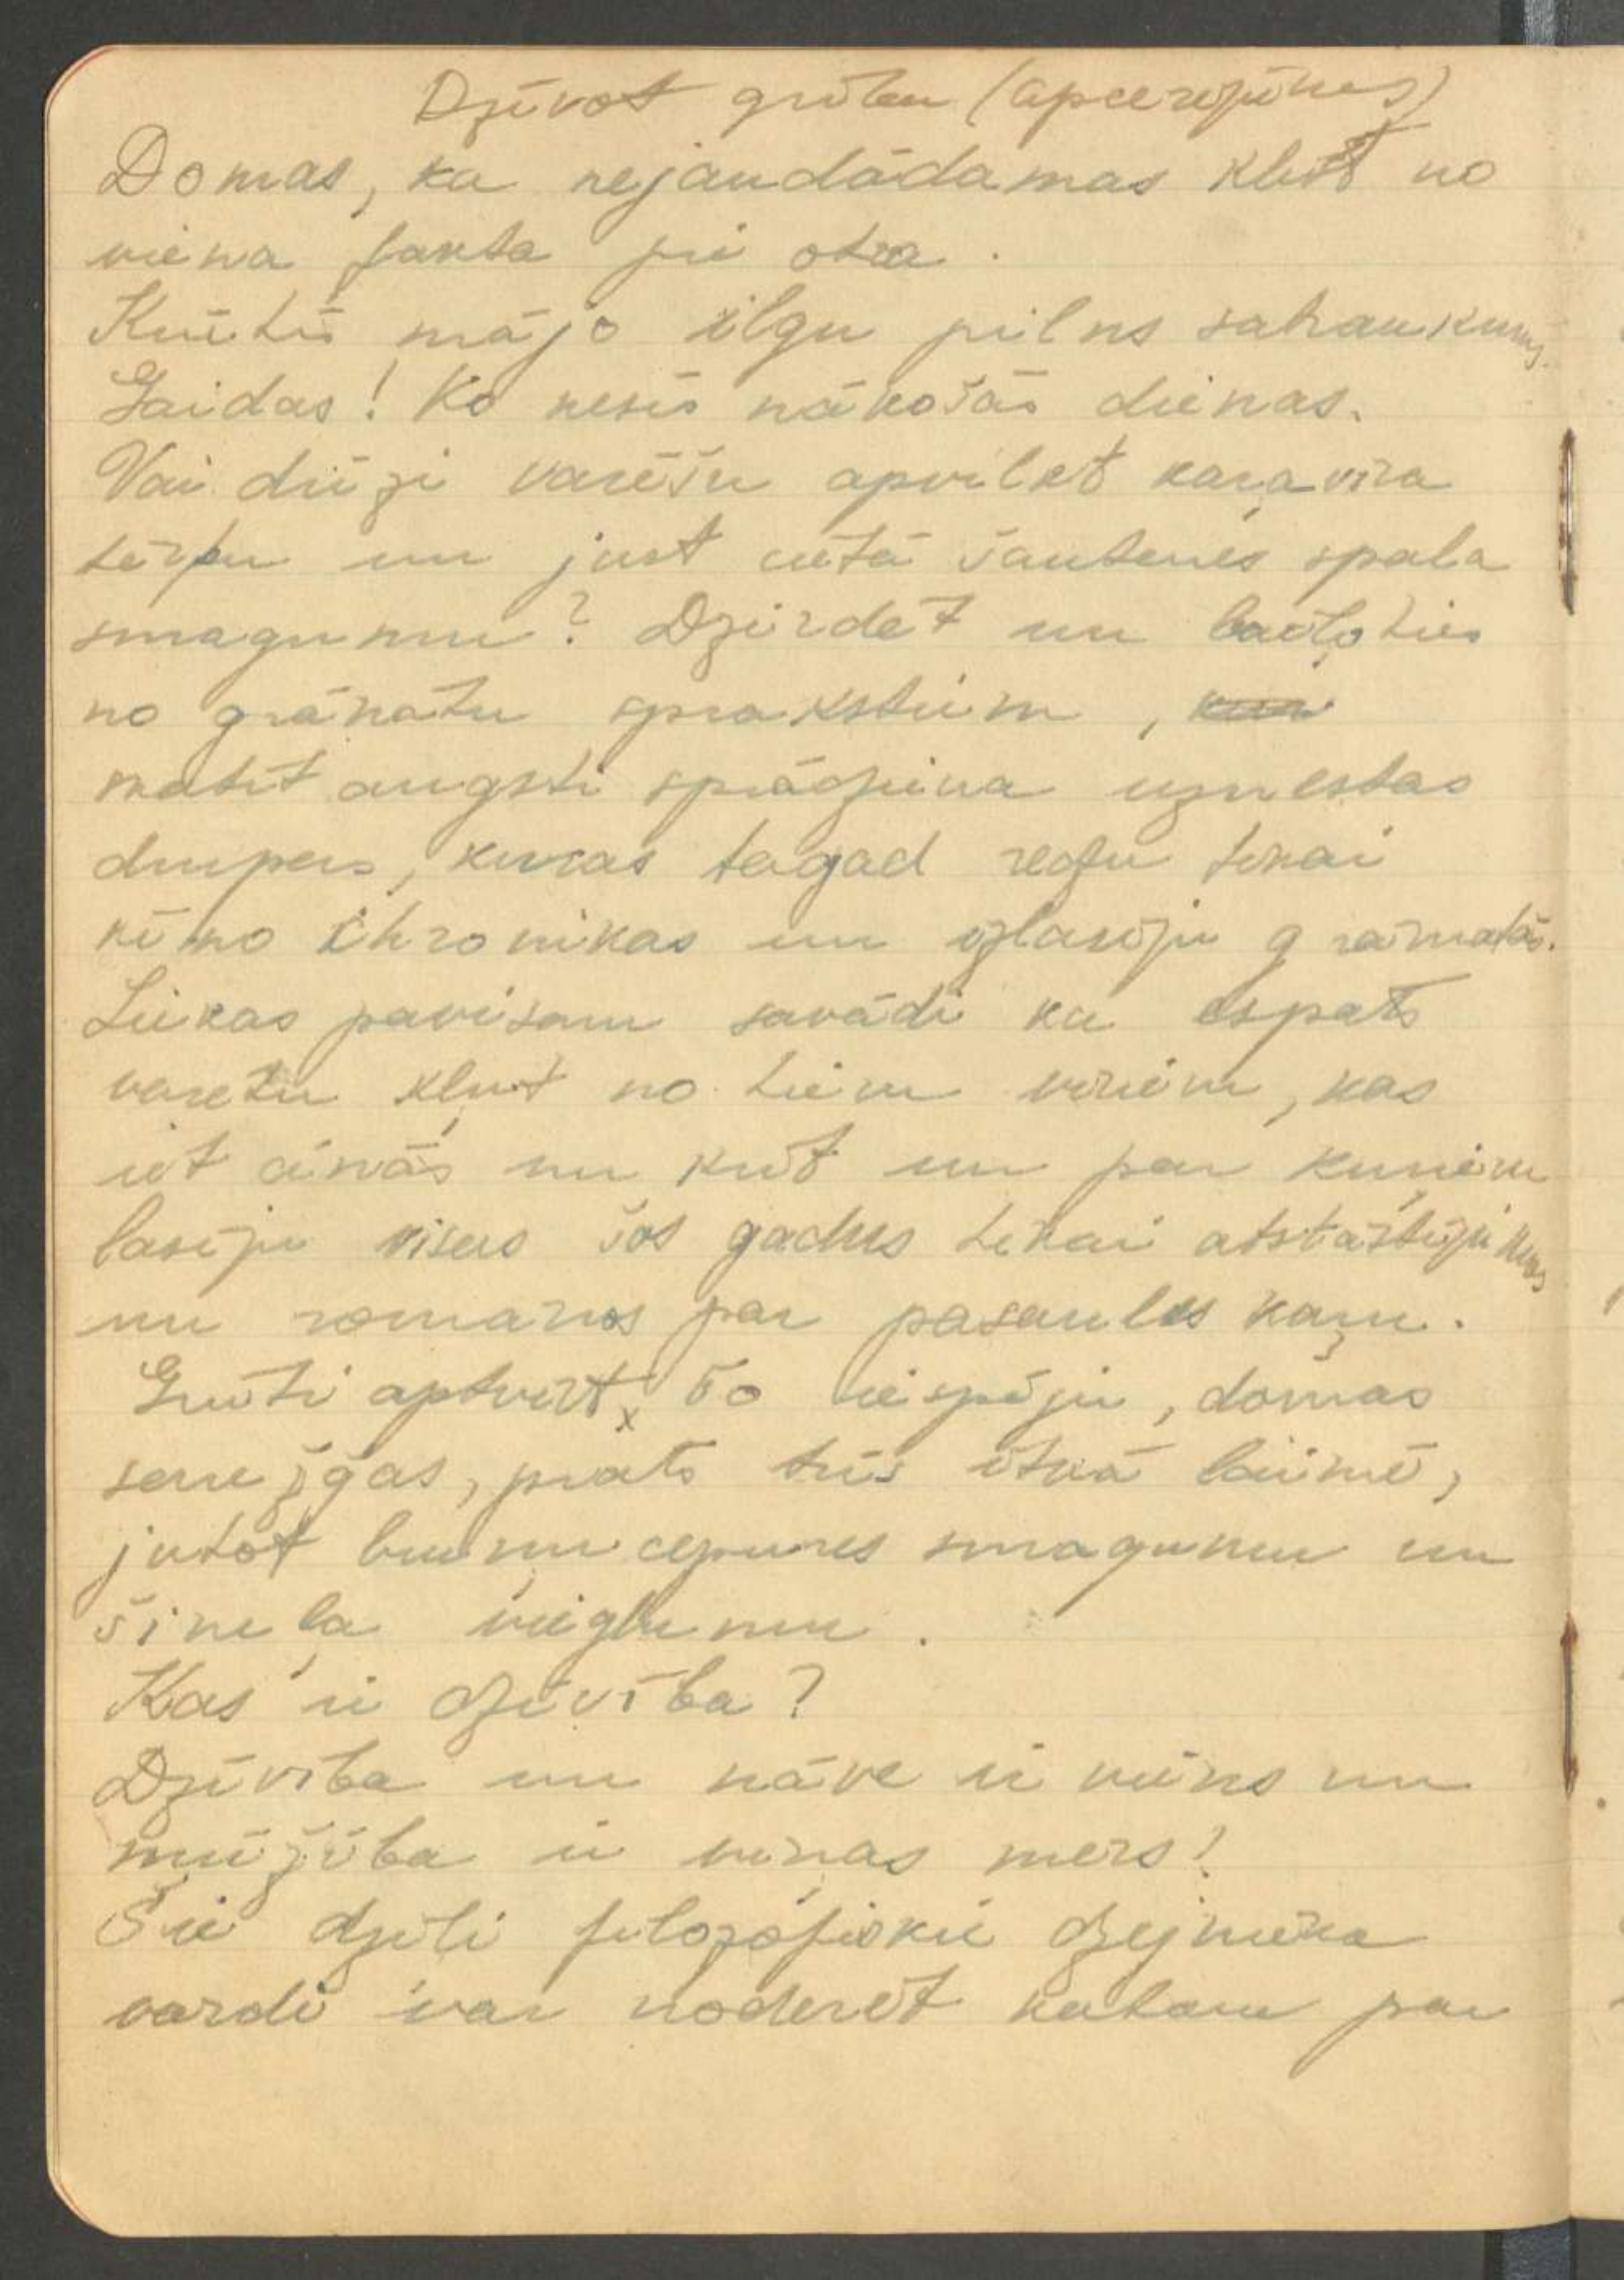 Dzīvot gribu (apcerējums)
Domas, ka nejaudādamas klīst no
viena fakta pie otra.
Krūtīs mājo ilgu pilns satraukums.
Gaidas! Ko nesīs nākošās dienas.
Vai drīzi varēšu apvilkt kaŗavīra
tērpu un just cietā šautenes spala
smagumu? Dzirdēt un baiļoties
no granātu sprakstiem,
matīt augsti sprādziena uznestas
drupas, kuras tagad redzu tikai
kino chronikas un izlasīju grāmatās.
Liekas pavisam savādi ka espats
varētu kļūt no tiem vīriem, kas
iet cīņās un krīt un par kuŗiem
lasīju visus šos gadus tikai atstāstījumus
un romānos par pasaules kaŗu.
Grūti aptvert šo iespēju, domas
samežģas, prāts trīs itkā laimē,
jutot bruņu cepures smagumu un
šineļa vieglumu.
Kas ir dzīvība?
Dzīvība un nāve ir viens un
mūžība ir viņas mērs!
Šie dziļi filozofiskie dzejnieka
vārdi var noderēt katam par